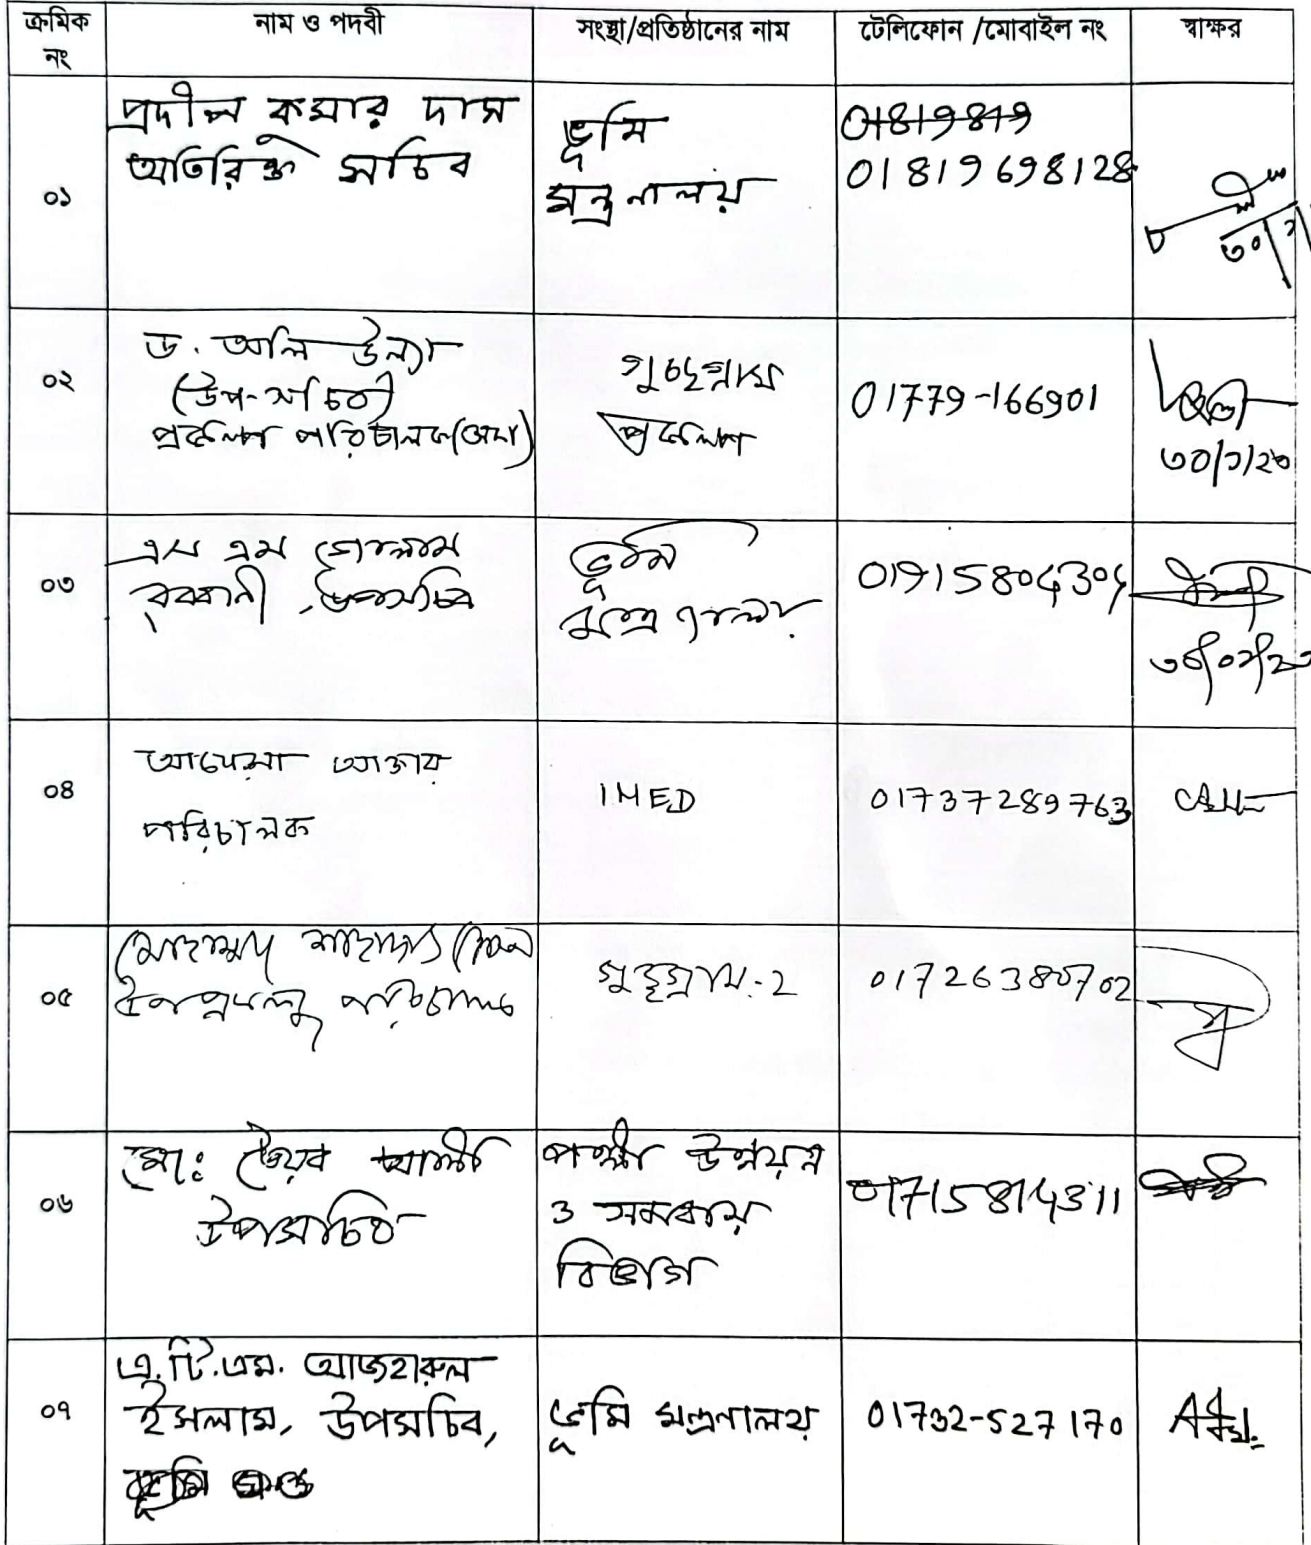 ক্রমিক নং | নাম ও পদবী | সংস্থা/প্রতিষ্ঠানের নাম | টেলিফোন /মোবাইল নং | স্বাক্ষর
০১
প্রদীপ কুমার দাস
অতিরিক্ত সচিব
ভূমি
মন্ত্রনালয়
01819849
01819698128
০২
ড. আলি উল্যা
(উপ-সচিব)
প্রকল্প পরিচালক
গুচ্ছগ্রাম
প্রকল্প
01779-166901
৩০/১/২৩
০৩
এস এম গোলাম
রব্বানী, উপসচিব
ভূমি
মন্ত্রণালয়
০৪
আক্তার
পরিচালক
IMED
01737289763
০৫
মোহাম্মদ
উপপ্রকল্প পরিচালক
গুচ্ছগ্রাম-2
01726380702
০৬
মো: তৈয়ব আলী
উপসচিব
পল্লী উন্নয়ন
ও সমবায়
বিভাগ
01715814311
০৭
এ.টি.এম. আজহারুল
ইসলাম, উপসচিব,
ভূমি মন্ত্রনালয়
01732-527170